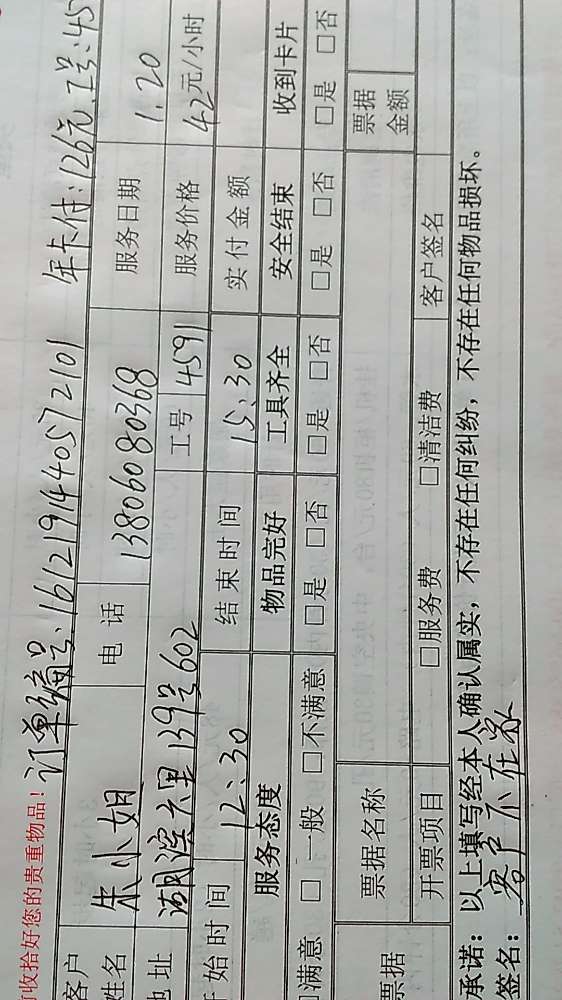 收拾好您的贵重物品！ 订单编号：1612191440572101 年卡付：126元 工号：45
客户姓名 朱小姐 电话 13806080368 服务日期 1.20
地址 湖滨六里139号602 工号 4591 服务价格 42元/小时
开始时间 12:30 结束时间 15:30 实付金额
服务态度 物品完好 工具齐全 安全结束 收到卡片
□满意 □一般 □不满意 □是 □否 □是 □否 □是 □否 □是 □否
票据 票据名称 票据金额
开票项目 □服务费 □清洁费 客户签名
承诺：以上填写经本人确认属实，不存在任何纠纷，不存在任何物品损坏。
签名：客户不在家